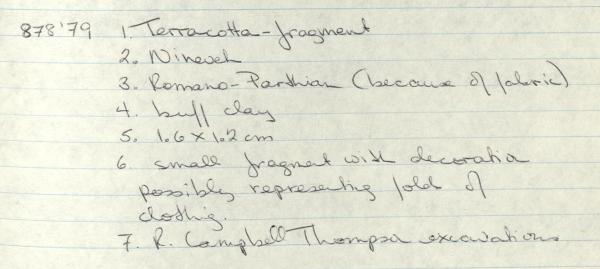 878'79 1. Terracotta-fragment
2. Nineveh
3. Romano-Parthian (because of fabric)
4. buff clay
5. 1.6 x 1.2 cm
6. small fragment with decoration
possibly representing fold of
clothing.
7. R. Campbell Thompson excavations